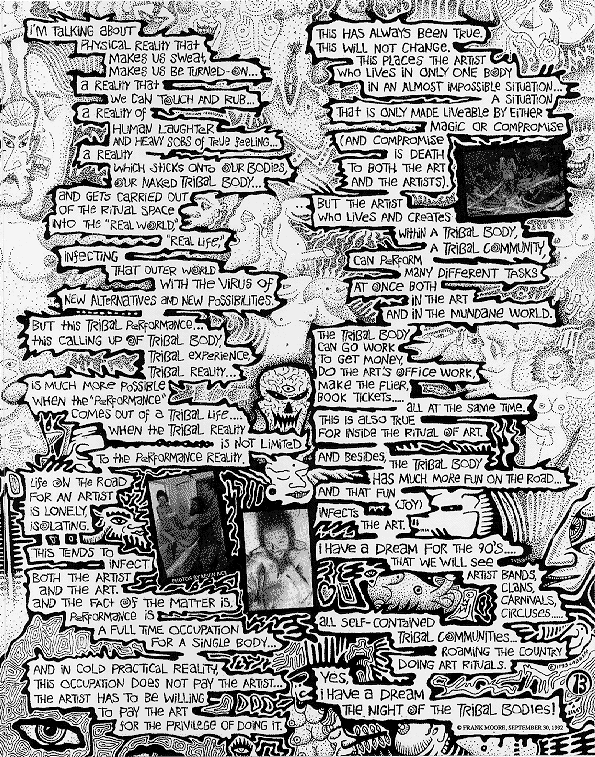 I'M TALKING ABOUT
PHYSICAL REALITY THAT
MAKES US SWEAT,
MAKES US BE TURNED-ON...
A REALITY THAT
WE CAN TOUCH AND RUB...
A REALITY OF
HUMAN LAUGHTER
AND HEAVY SOBS OF TRUE FEELING...
A REALITY
WHICH STICKS ONTO OUR BODIES,
OUR NAKED TRIBAL BODY...
AND GETS CARRIED OUT
OF THE RITUAL SPACE
INTO THE "REAL WORLD",
"REAL LIFE",
INFECTING
THAT OUTER WORLD
WITH THE VIRUS OF
NEW ALTERNATIVES AND NEW POSSIBILITIES.
BUT THIS TRIBAL PERFORMANCE...
THIS CALLING UP OF TRIBAL BODY,
TRIBAL EXPERIENCE,
TRIBAL REALITY...
IS MUCH MORE POSSIBLE
WHEN THE "PERFORMANCE"
COMES OUT OF A TRIBAL LIFE...
WHEN THE TRIBAL REALITY
IS NOT LIMITED
TO THE PERFORMANCE REALITY.
LIFE ON THE ROAD
FOR AN ARTIST
IS LONELY,
ISOLATING.
THIS TENDS TO
INFECT
BOTH THE ARTIST
AND THE ART.
AND THE FACT OF THE MATTER IS,
PERFORMANCE IS
A FULL TIME OCCUPATION
FOR A SINGLE BODY...
AND IN COLD PRACTICAL REALITY,
THIS OCCUPATION DOES NOT PAY THE ARTIST...
THE ARTIST HAS TO BE WILLING
TO PAY THE ART
FOR THE PRIVILEGE OF DOING IT.
THIS HAS ALWAYS BEEN TRUE.
THIS WILL NOT CHANGE.
THIS PLACES THE ARTIST
WHO LIVES IN ONLY ONE BODY
IN AN ALMOST IMPOSSIBLE SITUATION...
A SITUATION
THAT IS ONLY MADE LIVEABLE BY EITHER
MAGIC OR COMPROMISE
(AND COMPROMISE
IS DEATH
TO BOTH THE ART
AND THE ARTISTS).
BUT THE ARTIST
WHO LIVES AND CREATES
WITHIN A TRIBAL BODY,
A TRIBAL COMMUNITY,
CAN PERFORM
MANY DIFFERENT TASKS
AT ONCE BOTH
IN THE ART
AND IN THE MUNDANE WORLD.
THE TRIBAL BODY
CAN GO WORK
TO GET MONEY,
DO THE ART'S OFFICE WORK,
MAKE THE FLIER,
BOOK TICKETS.....
ALL AT THE SAME TIME.
THIS IS ALSO TRUE
FOR INSIDE THE RITUAL OF ART.
AND BESIDES,
THE TRIBAL BODY
HAS MUCH MORE FUN ON THE ROAD...
AND THAT FUN
(JOY)
INFECTS
THE ART.
I HAVE A DREAM FOR THE 90'S....
THAT WE WILL SEE
ARTIST BANDS,
CLANS,
CARNIVALS,
CIRCUSES.....
ALL SELF-CONTAINED
TRIBAL COMMUNITIES...
ROAMING THE COUNTRY
DOING ART RITUALS.
YES,
I HAVE A DREAM
THE NIGHT OF THE TRIBAL BODIES!
13
© FRANK MOORE, SEPTEMBER 30, 1992